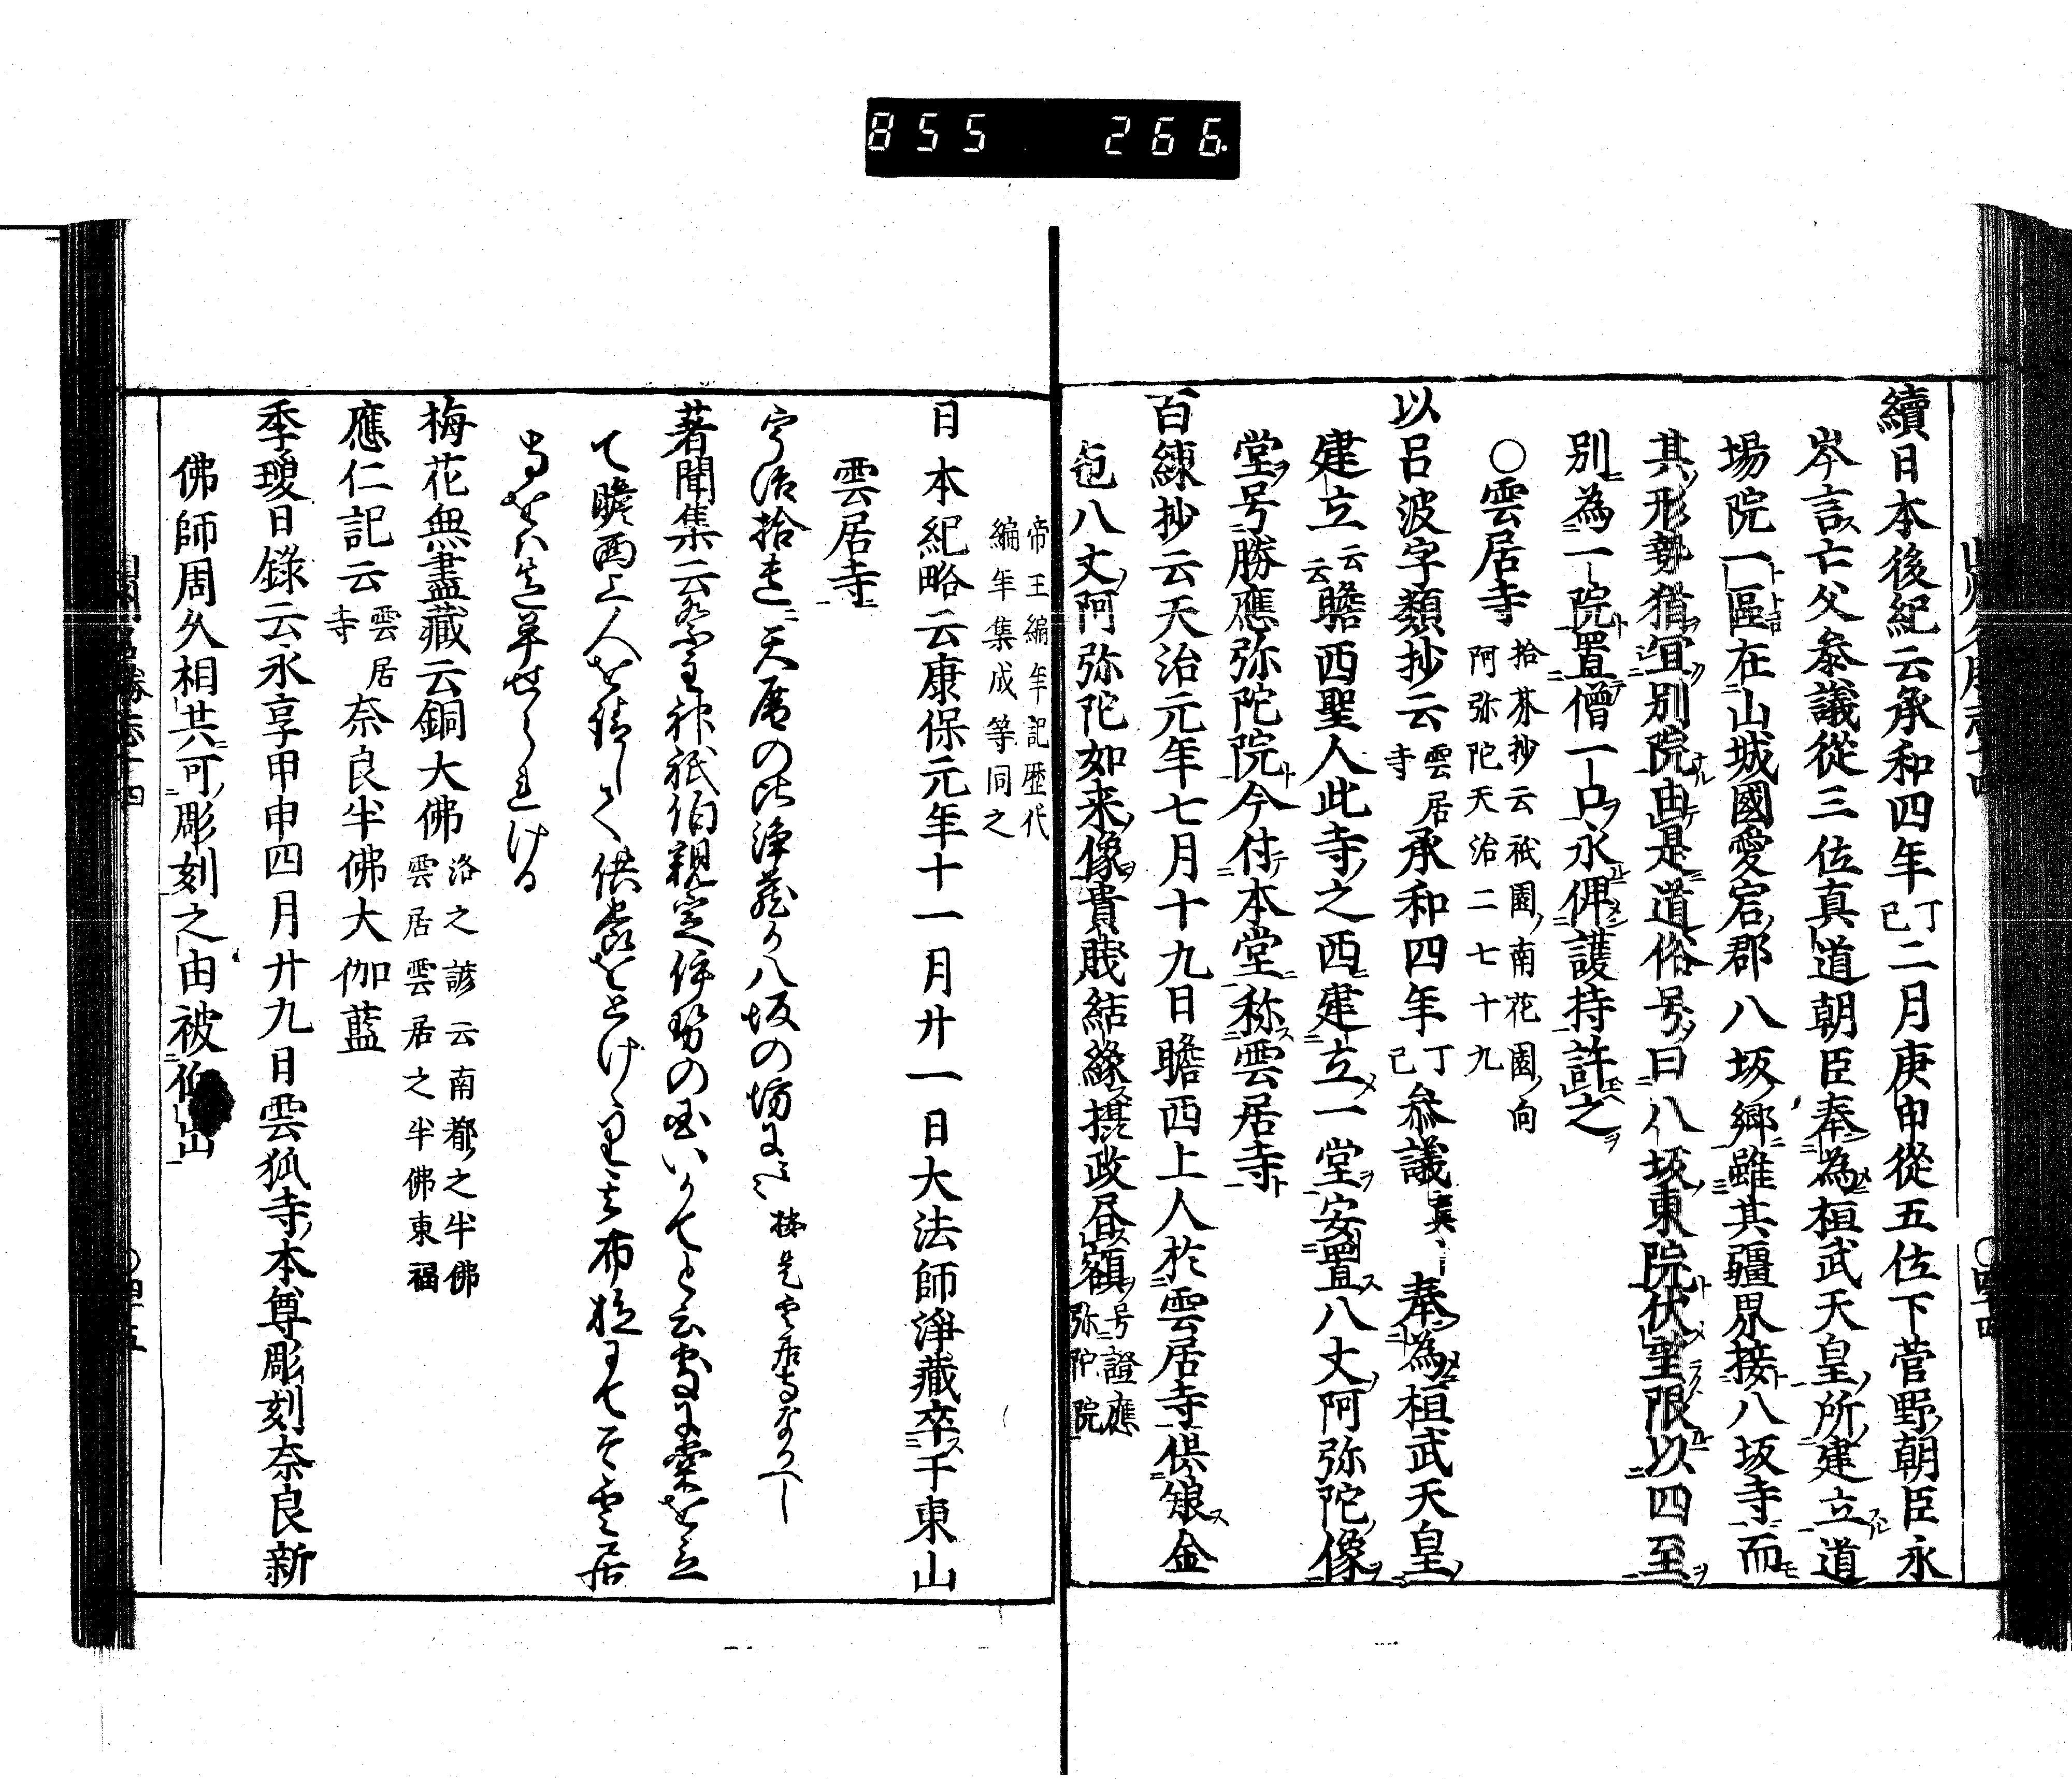 855 266
續日本後紀云承和四年丁巳二月庚申從五位下菅野朝臣永
岑言亡父参議從三位真道朝臣奉為桓武天皇所建立道
場院一區在山城國愛宕郡八坂郷雖其疆界接八坂寺而
其形勢猶宜別院由是道俗号曰八坂東院伏望限以四至
別為一院置僧一口永俾護持許之
○雲居寺 拾芥抄云祇園南花園向阿弥陀天治二七十九
以呂波字類抄云雲居寺承和四年丁巳参議真〻奉為桓武天皇
建立云云瞻西聖人此寺之西建立一堂安置八丈阿弥陀像
堂号勝應弥陀院今付本堂称雲居寺
百練抄云天治元年七月十九日瞻西上人於雲居寺供養金
色八丈阿弥陀如来像貴賎結縁摂政昼額号證應弥陀院
帝王編年記歴代
編年集成等同之
日本紀略云康保元年十一月廿一日大法師淨藏卒于東山
雲居寺
宇治拾遺ニ天暦の比浄蔵か八坂の坊に云〻 按是雲居寺なるへし
著聞集云祭主神祇伯親定伊勢の国いはてと云所に堂を立
て瞻西上人を請して供養をとけ
寺をは造草せられける
梅花無盡藏云銅大佛 洛之諺云南都之半佛雲居雲居之半佛東福
應仁記云雲居寺奈良半佛大伽藍
季瓊日錄云永享甲申四月廿九日雲狐寺本尊彫刻奈良新
佛師周久相共可彫刻之由被仰出